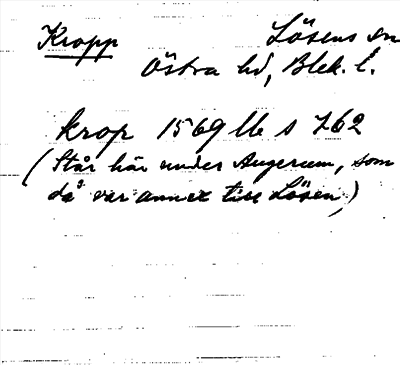 Kropp Lösens sn
Östra hd, Blek. l.
krop 1569 lb s 762
(Står här under Augerum, som
då var annex till Lösen)